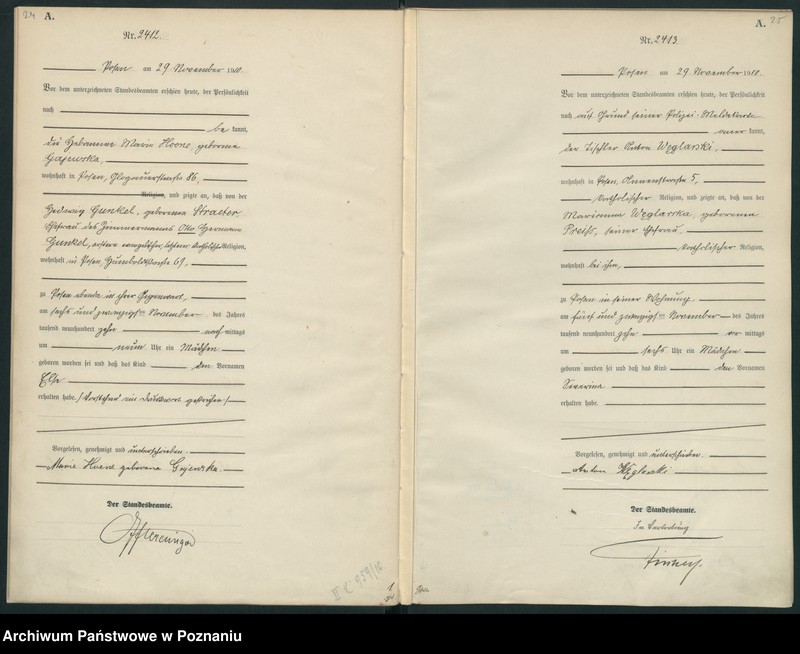 24
A.
Nr. 2412.
Posen am 29. November 1910.
Vor dem unterzeichneten Standesbeamten erschien heute, der Persönlichkeit
nach
be kannt,
die Hebamme Marie Hoene, geborene
Gajewska,
wohnhaft in Posen, Glogauerstraße 86,
Religion, und zeigte an, daß von der
Hedwig Gunkel, geborene Straeter
Ehefrau des Zimmermanns Otto Hermann
Gunkel, erstere evangelischer, letzterer katholischer Religion,
wohnhaft in Posen, Humboldtstraße
zu Posen ebenda in ihrer Gegenwart,
am sechs und zwanzigsten November des Jahres
tausend neunhundert zehn nachmittags
um neun Uhr ein Mädchen
geboren worden sei und daß das Kind den Vornamen
Else
erhalten habe. (Vorstehend ein Druckwort gestrichen)
Vorgelesen, genehmigt und unterschrieben.
Marie Hoene geborene Gajewska.
Der Standesbeamte.
A. 25
Nr. 2413.
Posen am 29. November 1910.
Vor dem unterzeichneten Standesbeamten erschien heute, der Persönlichkeit
nach auf Grund seiner Polizei-Meldekarte
aner kannt,
der Tischler Anton Węglarski,
wohnhaft in Posen, 5,
katholischer Religion, und zeigte an, daß von der
Marianna Węglarska, geborenen
Preiß, seiner Ehefrau
katholischer Religion,
wohnhaft bei ihm,
zu Posen in seiner Wohnung
am fünf und zwanzigsten November des Jahres
tausend neunhundert zehn vor mittags
um sechs Uhr ein Mädchen
geboren worden sei und daß das Kind den Vornamen
Severina
erhalten habe.
Vorgelesen, genehmigt und unterschrieben.
Anton Węglarski
Der Standesbeamte.
In Vertretung
Archiwum Państwowe w Poznaniu